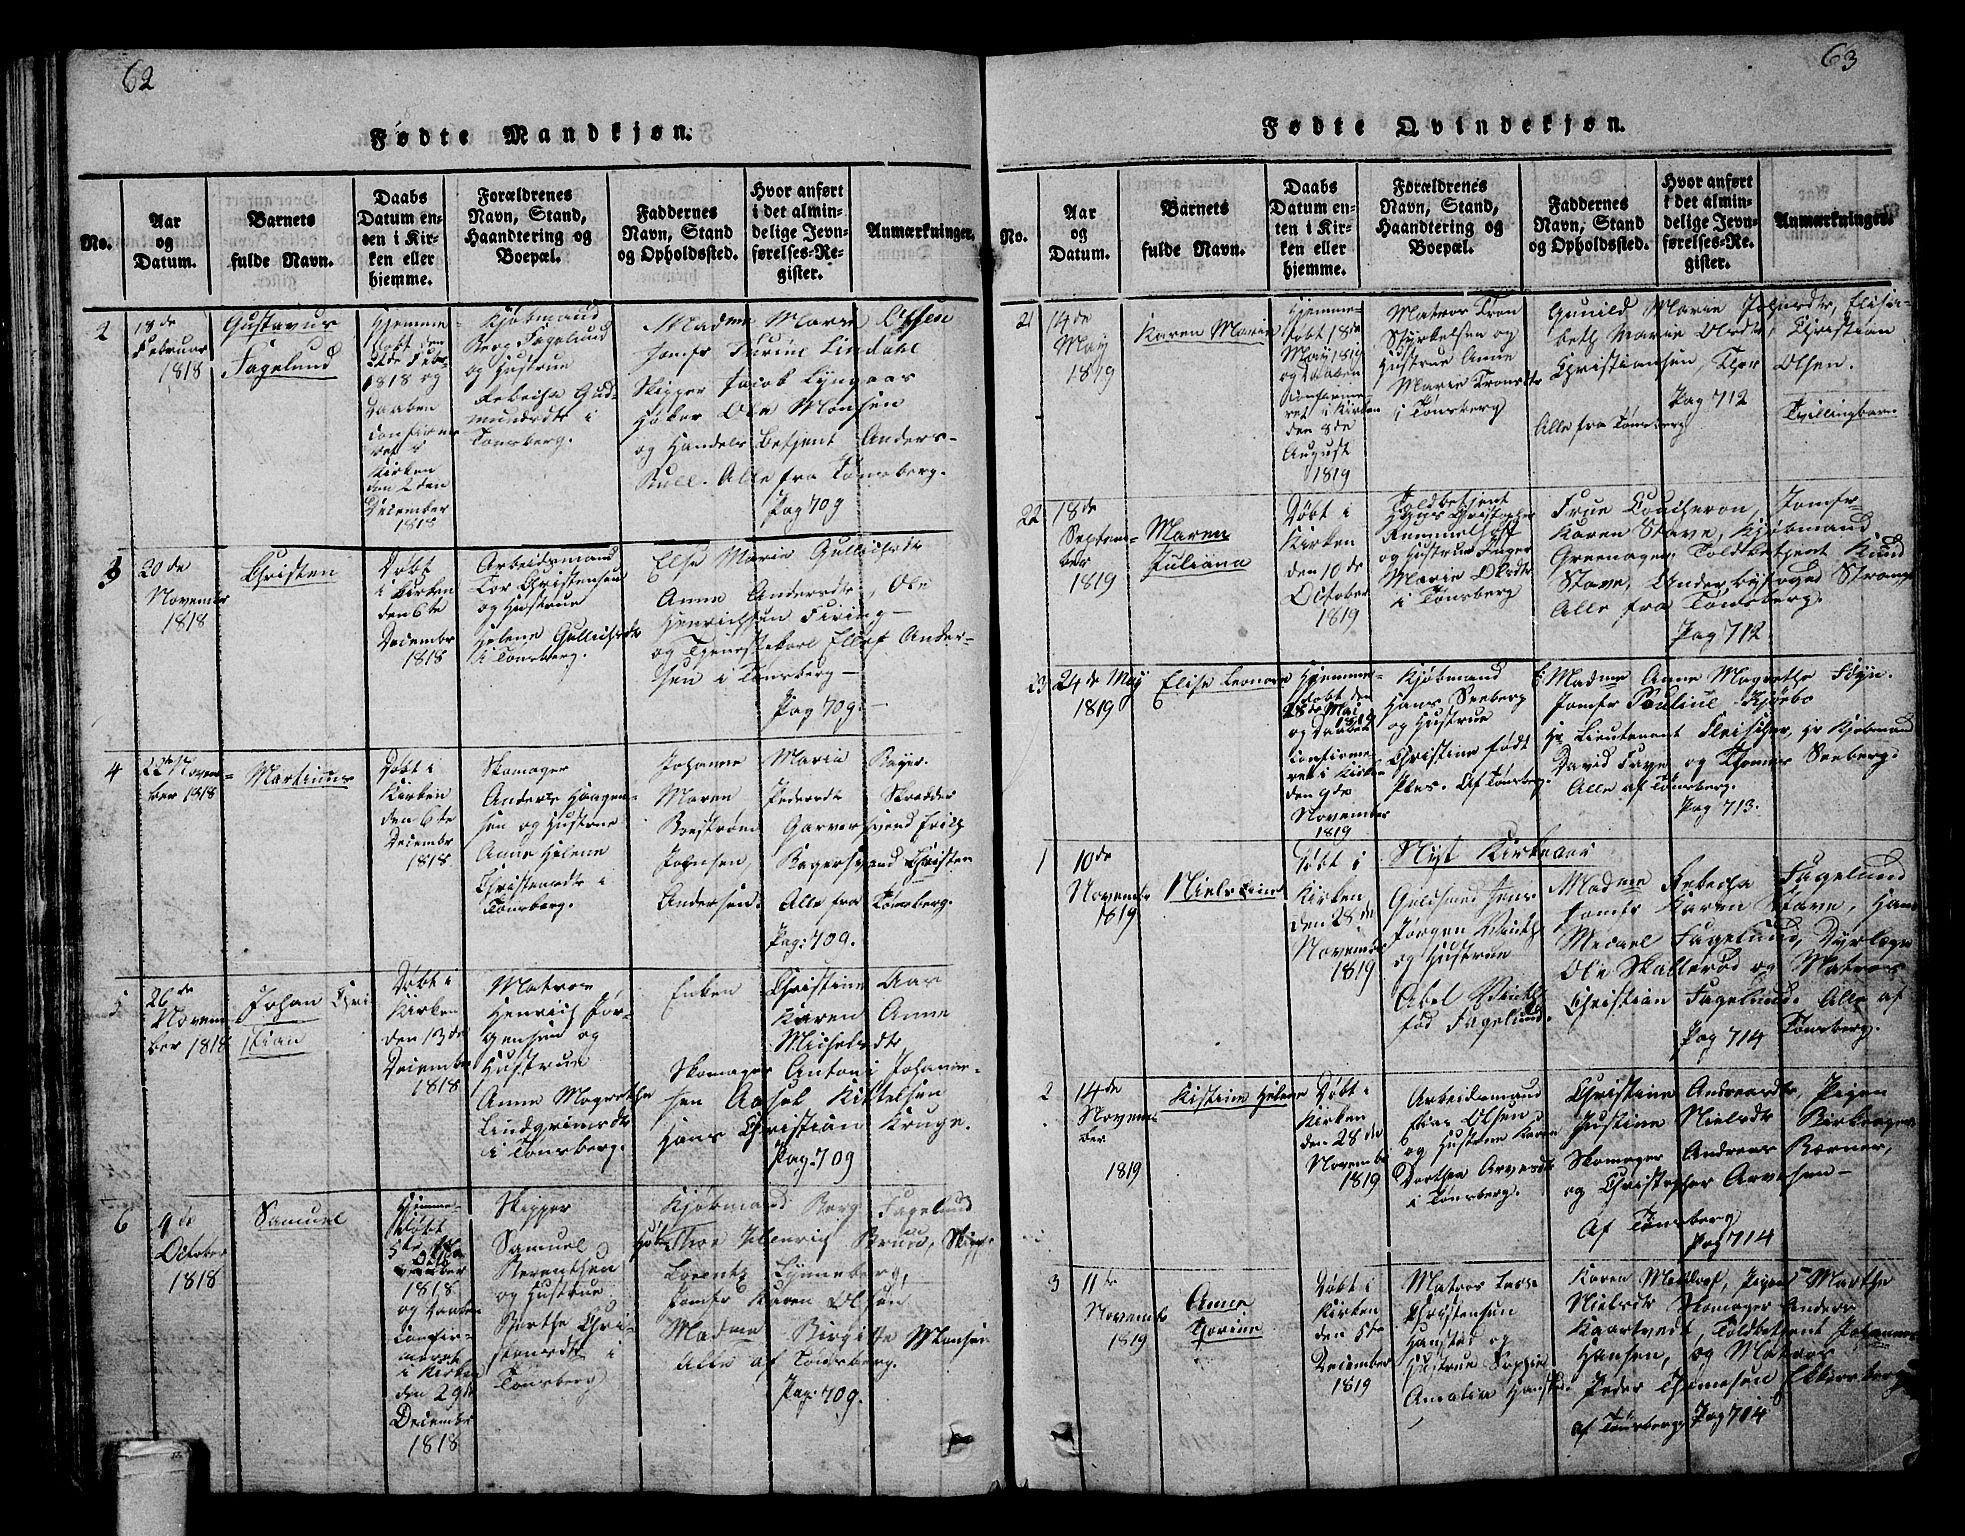 62
Fødte Mandkjøn.
No.
Aar
og
Datum.
Barnets
fulde Navn.
Daabs
Datum en-
ten i Kir-
ken eller
hjemme.
Forældrenes
Navn, Stand,
Haandtering og
Boepæl.
Faddernes
Navn, Stand
og Opholdssted.
Hvor anført
i det almin-
delige Jevn-
førelses-Re-
gister.
Anmærkninger.
2
18de
Februar
1818
Gustavus
Fagelund
Hjemme-
døbt den
Febr
1818 og
Daaben
Confirme-
ret i
Kirken
den 2den
December
1818
Kjøbmand
Berg Fagelund
og Hustrue
Rebecha Gud-
mundsdtr i
Tønsberg.
Madme Marie Olsen
Jomfr Turine Lindahl
Skipper Jacob Lyngaas
Høker Ole Monsen
og Handels Betjent Anders
Bull. Alle fra Tønsberg.
Pag 709
3
20de
November
1818
Christen
Døbt
i Kirken
den 6te
Decembr
1818
Arbeidsmand
Tor Christensen
og Hustrue
Helene Gullichsdtr
i Tønsberg.
Else Marie Gullichsdtr
Anne Andersdtr, Ole
Henrichsen Firing
og Tjenestekarl Ellef Ander-
sen i Tønsberg
Pag 709.
4
22de Novem-
ber 1818
Martinus
Døbt i
Kirken
den 6te
Decembr
1818
Skomager
Anders Haagen-
sen og Hustrue
Anne Helene
Christensdtr i
Tønsberg.
Johanne Maria Bayer.
Maren Pedersdtr Skrædder
Garversvend
Bagersvend Christen
Andersen. Alle fra Tønsberg.
Pag: 709.
5
26de
Novem-
ber 1818
Johan Chri
stian
Døbt i
Kirken
den 13de
December
1818
Matros
Henrich Jør-
gensen og
Hustrue
Anne Magrethe
Lindgrimsdtr
i Tønsberg.
Enken Christine Aas
Karen Anne
Michelsdtr
Skomager Anton Johanne-
sen Axsel Kittelsen
Hans Christian Kruge.
Pag: 709
6
9de
October
1818
Samuel
Hjemme-
døbt
5te
October
1818
og Daaben
Confir-
meret
i Kirken
den 29de
Decembr
1818
Skipper
Samuel
Berenthsen
og Hustrue
Berthe Chri-
stensdtr i
Tønsberg
Kjøbmand Berg Fagelund
Thor Henrich Bruu, Skipp
Lorentz Lynneberg,
Jomfr Karen Olsen
Madme Birgitte Monsen
Alle af Tønsberg.
Pag: 709.
63
Fødte Qvindekjøn.
No.
Aar
og
Datum.
Barnets
fulde Navn.
Daabs
Datum en-
ten i Kir-
ken eller
hjemme.
Forældrenes
Navn, Stand,
Haandtering og
Boepæl.
Faddernes
Navn, Stand
og Opholdssted.
Hvor anført
i det almin-
delige Jevn-
førelses-Re-
gister.
Anmærkninger.
21
14de
May
1819
Karen Marie
Hjemme-
døbt 18de
May 1819
og Daaben
Confirme-
ret i Kirken
den 8de
August
1819
Matros Tron
Styrkelsen og
Hustrue Anne
Marie Tronsdtr
i Tønsberg
Gunild Marie Johnsdtr, Elisa-
beth Marie Olsdtr, Christian
Christiansen, Thor Olsen.
Pag 712
Alle fra Tønsberg
Tvillingbarn
22
18de
Septem-
ber
1819
Maren
Juliana
Døbt i
Kirken
den 10de
October
1819
Toldbetjent
Hans Christopher
Rummelhoff
og Hustrue Inger
Marie Olsdtr
i Tønsberg
Frue Coucheron, Jomfr
Karen Stave, Kjøbmand
Greenager, Toldbetjent Knud
Stave, Under Byfoged Strang
Alle fra Tønsberg.
Pag 712.
23
24de May
1819
Elise Leonore
Hjemme-
døbt den
28de Mai
1819
og Daaben
Confirme-
ret i Kirken
den 9de
November
1819
Kjøbmand
Hans Seeberg
og Hustrue
Christine født
Ples. Af Tønsberg.
Madme Anne Magrethe Føyn.
Jomfr Pauline Kjørbo
Hr Lieutenant Fleischer, Hr Kjøbmand
David Faye og Thomas Seeberg.
Alle af Tønsberg.
Pag 713.
Nyt Kirkeaar
1
10de
Novembr
1819
Nielsine
Døbt i
Kirken,
den 28de
Novembr
1819
Guldsmed Jens
Jørgen Winth
og Hustrue
Abel Winth
fød Fagelund.
Madme Rebecha Fagelund
Jomfr Karen Stave, Hans
Mecael Fagelund, Dyrlæge
Ole Skallerød og Matros
Christian Fagelund. Alle af
Tønsberg.
Pag 714
2
14de
Novem-
ber
1819
Kistine Helene
Døbt i
Kirken
den 28de
Novembr
1819
Arbeidsmand
Olsen
og Hustrue Karen
Dorthea Arvesdtr
i Tønsberg.
Christine Andersdtr, Pigen
Justine Nielsdtr Birkeager
Skomager Andreas Berner,
og Christopher Arvesen
Af Tønsberg
Pag 714
3
11te
Novembr
1819
Anne
Thorine
Døbt i
Kirken
den 5te
December
1819
Matros Lars
Christensen
Hanstad og
Hustrue Sophie
Amalia Hansdtr
Karen Medlos, Pigen Marthe
Nielsdtr Skomager Anders
Kaartvedt, Toldbetjent Johannes
Hansen, og Matros
Peder Thomesen Ekkersberg
Af Tønsberg Pag 714